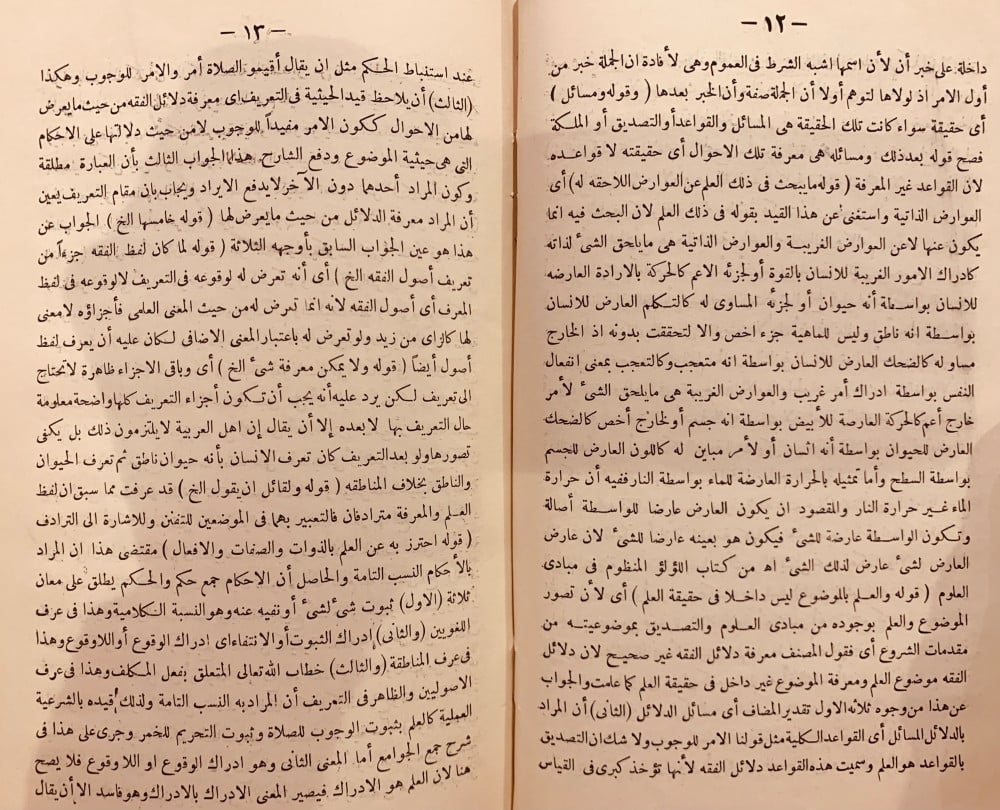 - ١٢ -
داخلة على خبر أن لأن اسمها اشبه الشرط فى العموم وهى لأفادة ان الجملة خبر من
أول الامر اذ لولاها لتوهم أولا أن الجملة صفة وأن الخبر بعدها ( وقوله ومسائل )
أى حقيقة سواء كانت تلك الحقيقة هى المسائل والقواعد أو التصديق أو الملكة
فصح قوله بعد ذلك ومسائله هى معرفة تلك الاحوال أى حقيقته لا قواعده
لان القواعد غير المعرفة ( قوله ما يبحث فى ذلك العلم عن العوارض اللاحقه له ) أى
العوارض الذاتية واستغنى عن هذا القيد بقوله فى ذلك العلم لان البحث فيه انما
يكون عنها لاعن العوارض الغريبة والعوارض الذاتية هى ما يلحق الشئ لذاته
كادراك الامور الغريبة للانسان بالقوة أو لجزئه الاعم كالحركة بالارادة العارضه
للانسان بواسطة أنه حيوان أو لجزئه المساوى له كالتكلم العارض للانسان
بواسطة انه ناطق وليس للماهية جزء اخص والا لتحققت بدونه اذ الخارج
مساو له كالضحك العارض للانسان بواسطة انه متعجب وكالتعجب بمعنى انفعال
النفس بواسطة ادراك أمر غريب والعوارض الغريبة هى ما يلحق الشئ لأمر
خارج أعم كالحركة العارضة للأبيض بواسطة انه جسم أو لخارج أخص كالضحك
العارض للحيوان بواسطة أنه انسان أو لأمر مباين له كاللون العارض للجسم
بواسطة السطح وأما تمثيله بالحرارة العارضة للماء بواسطة النار ففيه أن حرارة
الماء غير حرارة النار والمقصود ان يكون العارض عارضا للواسطة أصالة
وتكون الواسطة عارضة للشئ فيكون هو بعينه عارضا للشئ لان عارض
العارض لشئ عارض لذلك الشئ اه من كتاب اللؤلؤ المنظوم فى مبادى
العلوم ( قوله والعلم بالموضوع ليس داخلا فى حقيقة العلم ) أى لأن تصور
الموضوع والعلم بوجوده من مبادى العلوم والتصديق بموضوعيته من
مقدمات الشروع أى فقول المصنف معرفة دلائل الفقه غير صحيح لان دلائل
الفقه موضوع العلم ومعرفة الموضوع غير داخل فى حقيقة العلم كما عامت والجواب
عن هذا من وجوه ثلاثه الاول تقدير المضاف أى مسائل الدلائل (الثانى) أن المراد
بالدلائل المسائل أى القواعد الكلية مثل قولنا الامر للوجوب ولا شك ان التصديق
بالقواعد هو العلم وسميت هذه القواعد دلائل الفقه لأنها تؤخذ كبرى فى القياس
- ١٣ -
عند استنباط الحكم مثل ان يقال أقيمو الصلاة أمر والامر للوجوب وهكذا
(الثالث) أن يلاحظ قيد الحيثية فى التعريف اى معرفة دلائل الفقه من حيث ما يعرض
لها من الاحوال ككون الامر مفيداً للوجوب لا من حيث دلالتها على الاحكام
التى هى حيثية الموضوع ودفع الشارح هذا الجواب الثالث بأن العبارة مطلقة
وكون المراد أحدهما دون الآخر لا يدفع الايراد ويجاب بان مقام التعريف يعين
أن المراد معرفة الدلائل من حيث ما يعرض لها ( قوله خامسها الخ ) الجواب عن
هذا هو عين الجواب السابق بأوجهه الثلاثة ( قوله لما كان لفظ الفقه جزءاً من
تعريف أصول الفقه الخ ) أى أنه تعرض له لوقوعه فى التعريف لا لوقوعه فى لفظ
المعرف أى أصول الفقه لانه انما تعرض له من حيث المعنى العلمى فأجزاؤه لا معنى
لها كازاى من زيد ولو تعرض له باعتبار المعنى الاضافى لكان عليه أن يعرف لفظ
أصول أيضاً ( قوله ولا يمكن معرفة شئ الخ ) أى وباقى الاجزاء ظاهرة لا تحتاج
الى تعريف لكن يرد عليه أنه يجب أن تكون أجزاء التعريف كلها واضحة معلومة
حال التعريف بها لا بعده إلا أن يقال إن اهل العربية لا يلتزمون ذلك بل يكفى
تصورها ولو بعد التعريف كان تعرف الانسان بأنه حيوان ناطق ثم تعرف الحيوان
والناطق بخلاف المناطقه ( قوله ولقائل ان يقول الخ ) قد عرفت مما سبق ان لفظ
العلم والمعرفة مترادفان فالتعبير بهما فى الموضعين للتفنن وللاشارة الى الترادف
( قوله احترز به عن العلم بالذوات والصفات والافعال ) مقتضى هذا ان المراد
بالأحكام النسب التامة والحاصل أن الاحكام جمع حكم والحكم يطلق على معان
ثلاثة (الاول) ثبوت شئ لشئ أو نفيه عنه وهو النسبة الكلامية وهذا فى عرف
اللغويين (والثانى) إدراك الثبوت أو الانتفاء اى ادراك الوقوع أو اللاوقوع وهذا
فى عرف المناطقة (والثالث) خطاب الله تعالى المتعلق بفعل المكلف وهذا فى عرف
الاصوليين والظاهر فى التعريف أن المراد به النسب التامة ولذلك قيده بالشرعية
العملية كالعلم بثبوت الوجوب للصلاة وثبوت التحريم للخمر وجرى على هذا فى
شرح جمع الجوامع أما المعنى الثانى وهو ادراك الوقوع او اللاوقوع فلا يصح
هنا لان العلم هو الادراك فيصير المعنى الادراك بالادراك وهو فاسد الا أن يقال